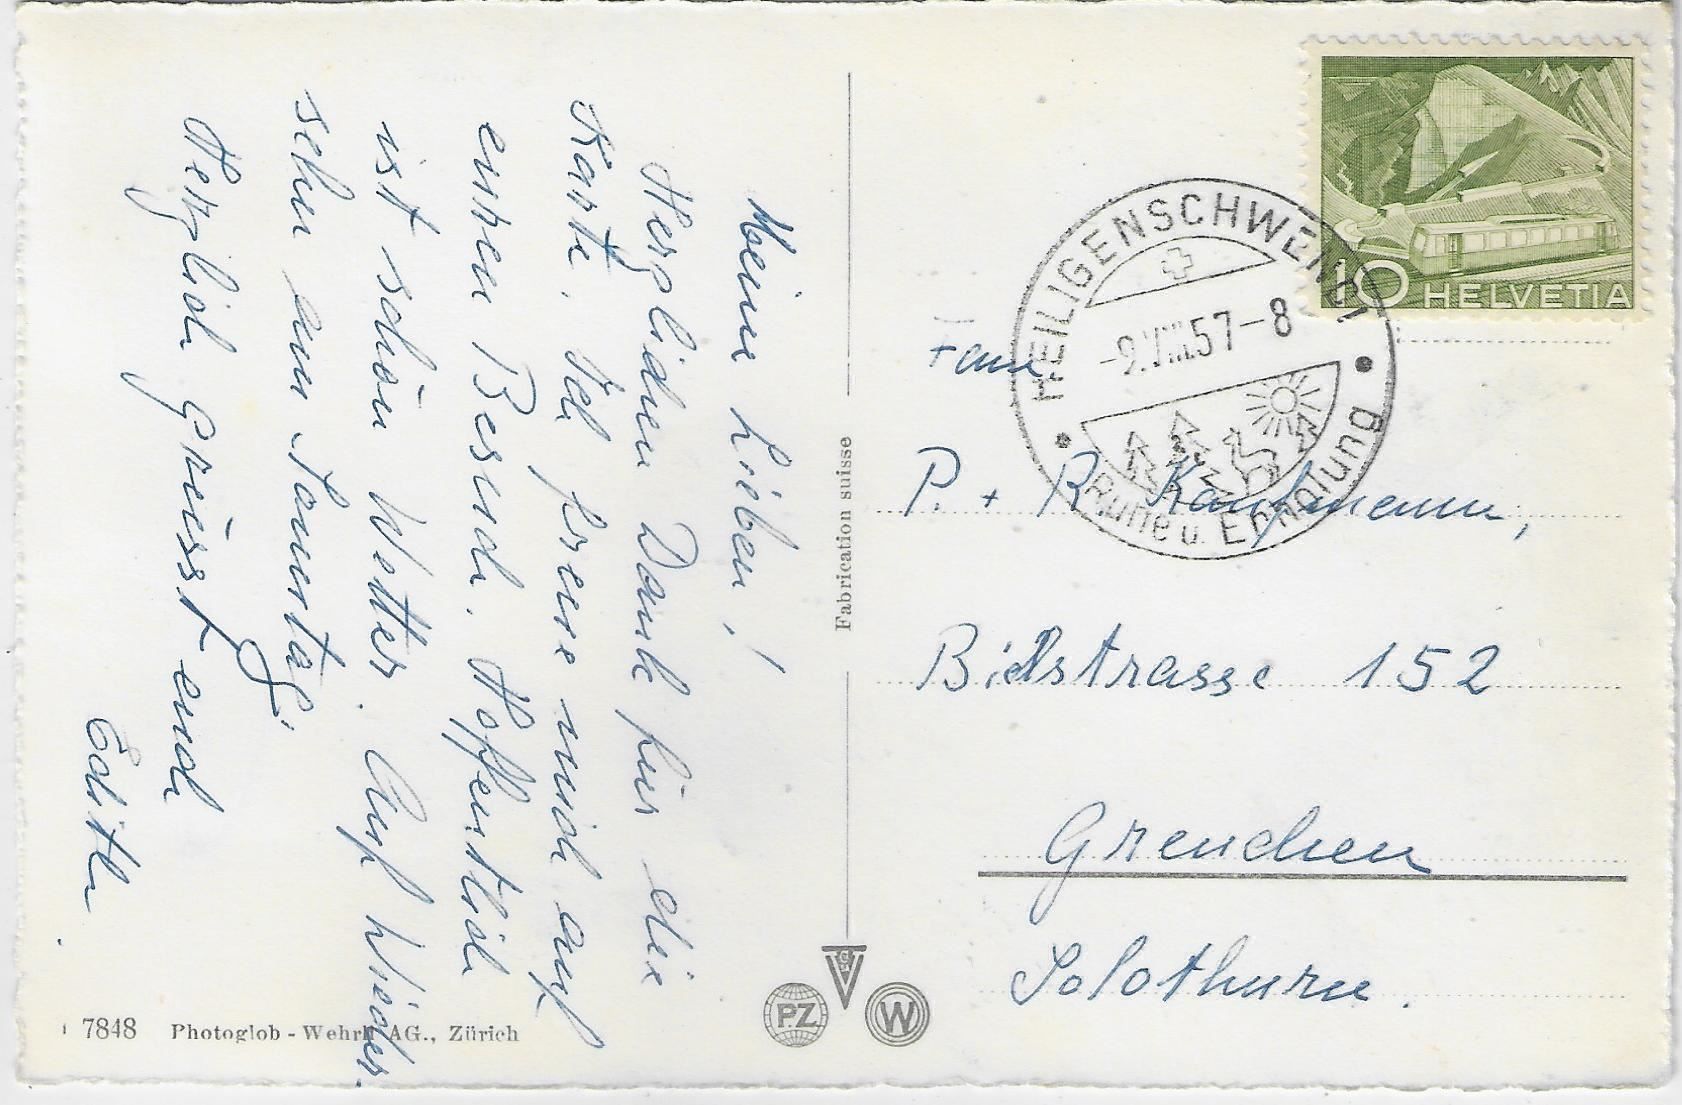 Meine Lieben!
Herzlichen Dank für die
Karte. Ich freue mich auf
euren Besuch. Hoffentlich
ist schön Wetter. Auf Wieder-
sehn am Sonntag.
Herzlich grüsst euch
Edith.
7848 Photoglob - Wehrli AG., Zürich
Fabrication suisse
PZ
W
HELVETIA
10
HEILIGENSCHWENDI
-9.VIII.57-8
Ruhe u. Erholung
Fam.
P. + R Kaufmann,
Bielstrasse 152
Grenchen
Solothurn.